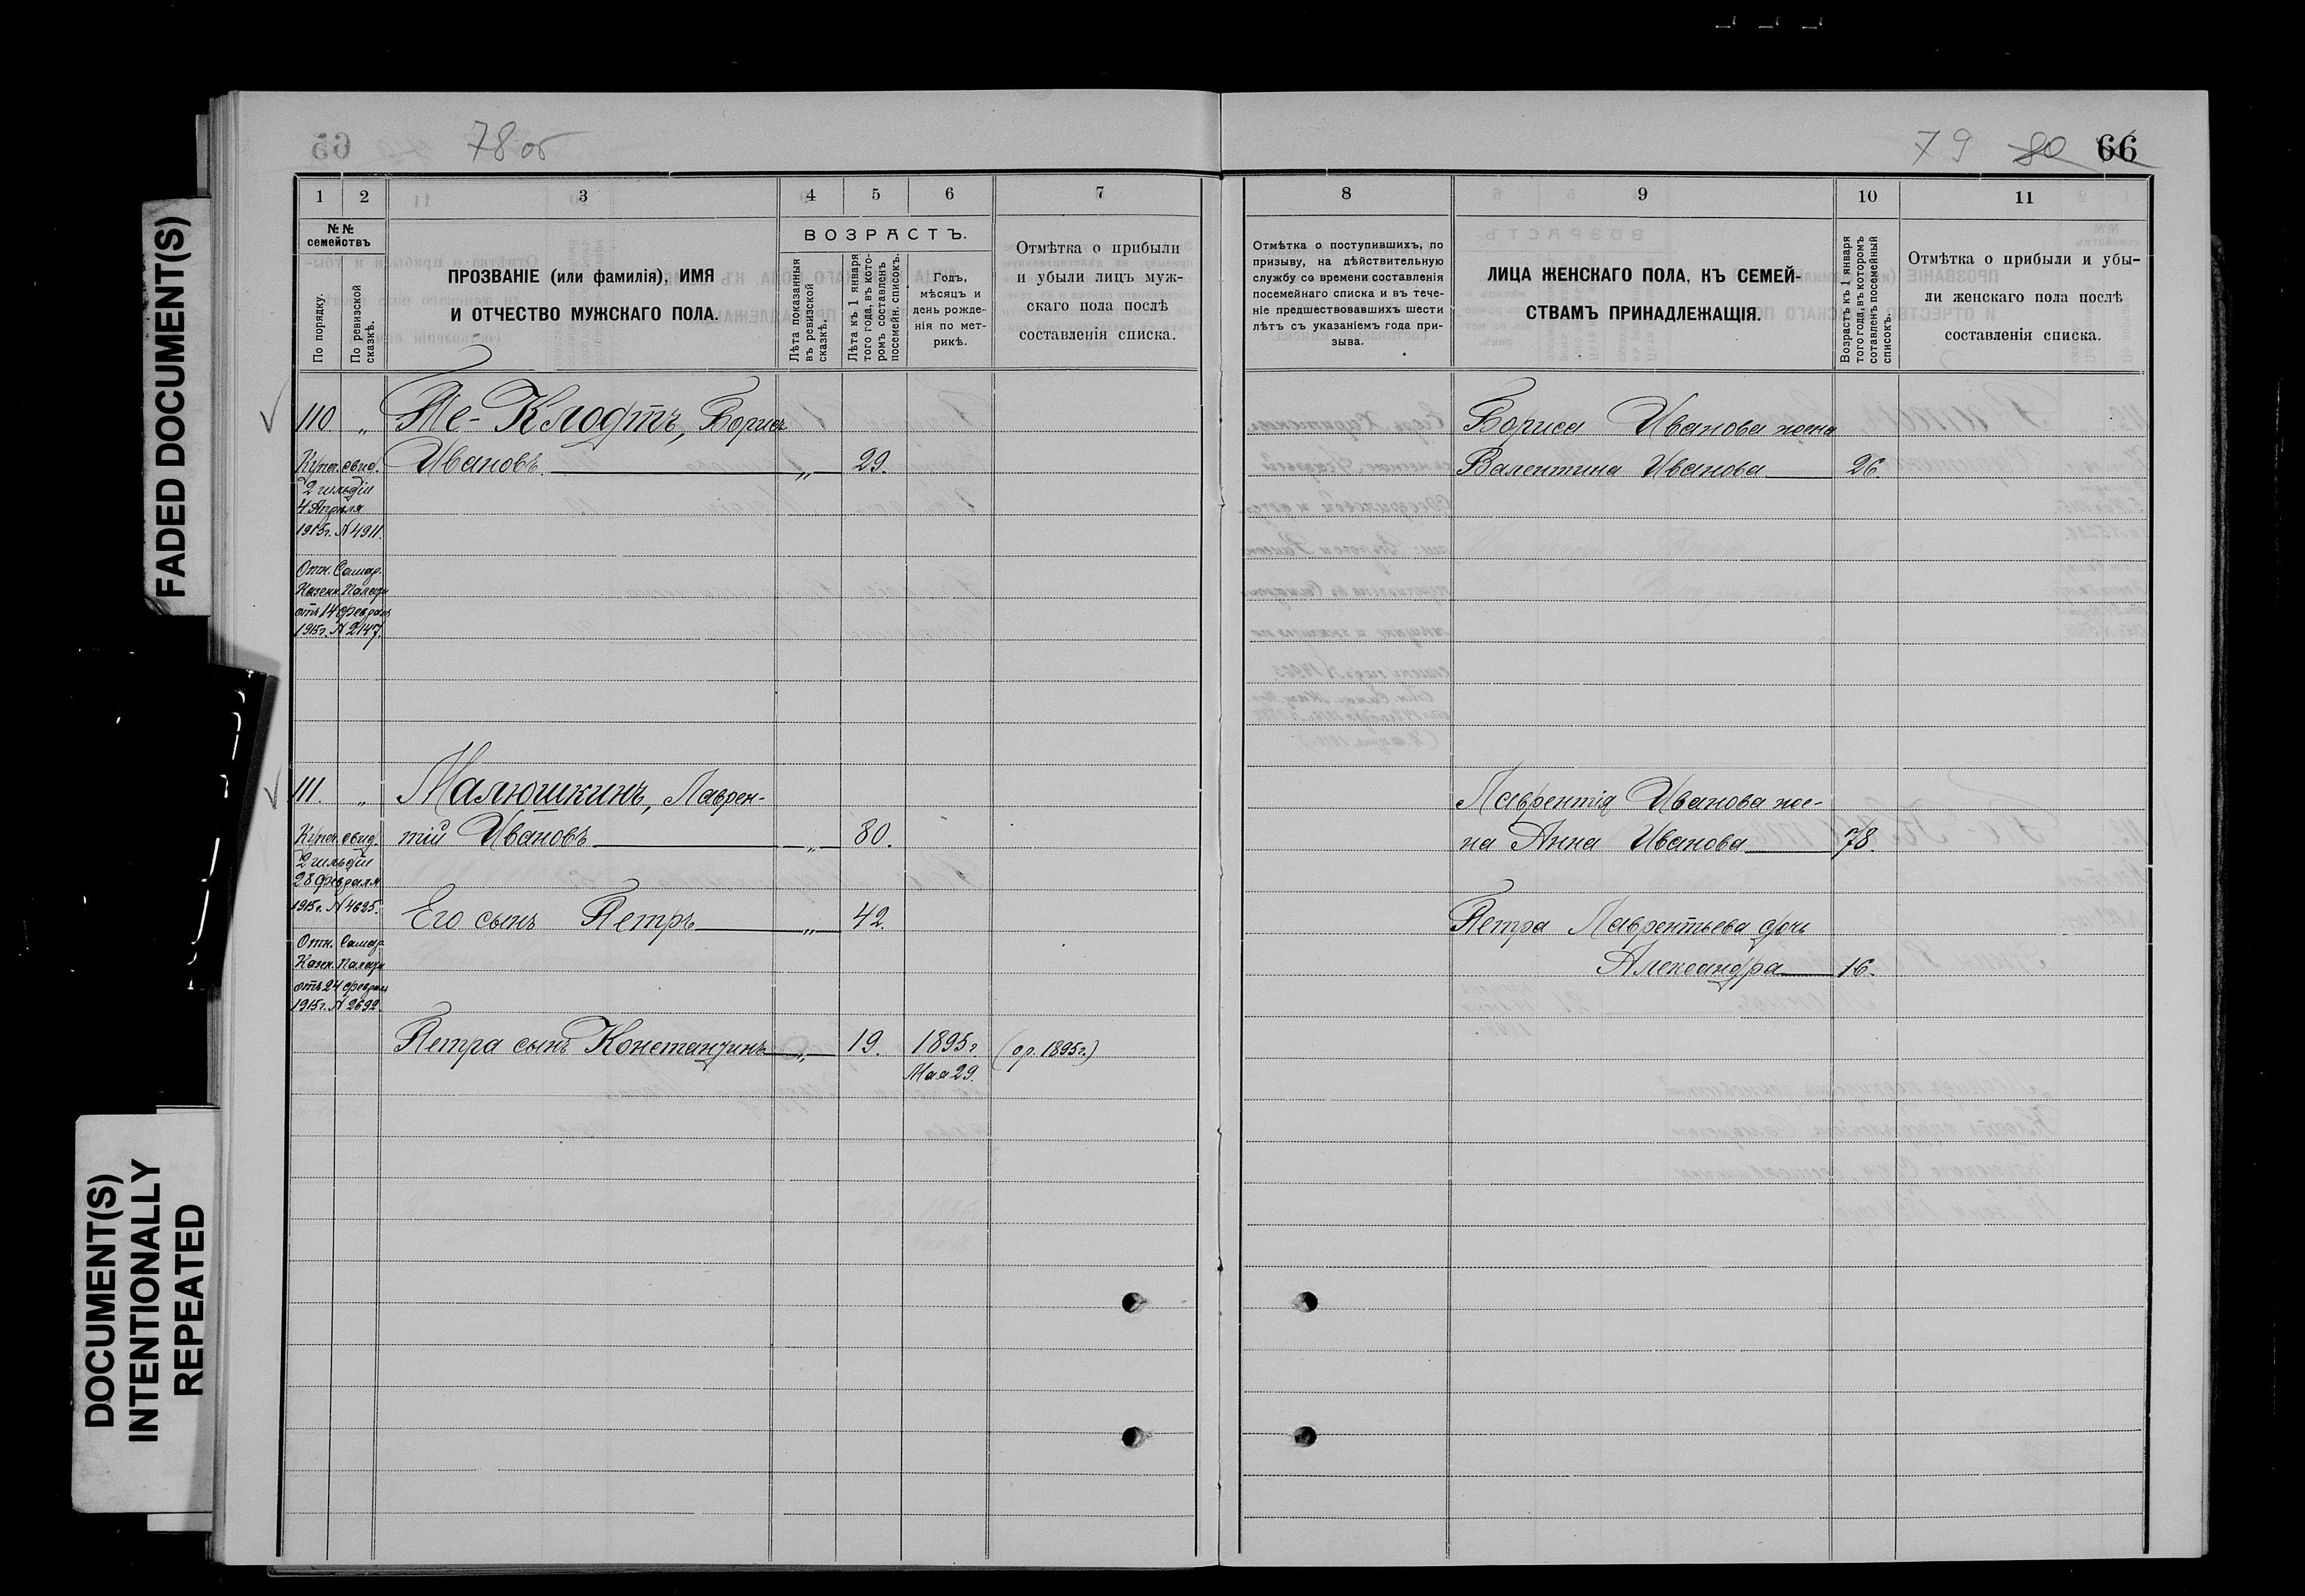 FADED DOCUMENT(S)
DOCUMENT(S)
INTENTIONALLY
REPEATED
78 об
1 2 3 4 5 6 7
№№ семействъ
По порядку.
По ревизской сказкѣ.
ПРОЗВАНІЕ (или фамилія), ИМЯ
И ОТЧЕСТВО МУЖСКАГО ПОЛА.
ВОЗРАСТЪ.
Лѣта показанныя въ ревизской сказкѣ.
Лѣта къ 1 января того года, въ которомъ составленъ посемейн. списокъ.
Годъ,
мѣсяцъ и
день рожде-
нія по мет-
рикѣ.
Отмѣтка о прибыли
и убыли лицъ муж-
скаго пола послѣ
составленія списка.
110. „ Те-Клодтъ, Борисъ
Ивановъ „ 29.
Купеч. свид.
2 гильдіи
4 Апрѣля
1915г. № 4911.
Отн. Самар.
Казенн. Палаты
отъ 14 февраля
1915г. № 2147.
111. „ Малюшкинъ, Лаврен-
тій Ивановъ „ 80.
Купеч. свид.
2 гильдіи
28 февраля
1915г. № 4625.
Его сынъ Петръ „ 42.
Отн. Самар.
Казен. Палаты
отъ 24 февраля
1915г. № 2692.
Петра сынъ Константинъ „ 19. 1895г (пр. 1895г.)
Мая 29.
79 80 66
8 9 10 11
Отмѣтка о поступившихъ, по
призыву, на дѣйствительную
службу со времени составленія
посемейнаго списка и въ тече-
ніе предшествовавшихъ шести
лѣтъ съ указаніемъ года при-
зыва.
ЛИЦА ЖЕНСКАГО ПОЛА, КЪ СЕМЕЙ-
СТВАМЪ ПРИНАДЛЕЖАЩІЯ.
Возрастъ къ 1 января
того года, въ которомъ
сотавленъ посемейный
списокъ.
Отмѣтка о прибыли и убы-
ли женскаго пола послѣ
составленія списка.
Бориса Иванова жена
Валентина Иванова 26.
Лаврентія Иванова же-
на Анна Иванова 78.
Петра Лаврентьева дочь
Александра 16.